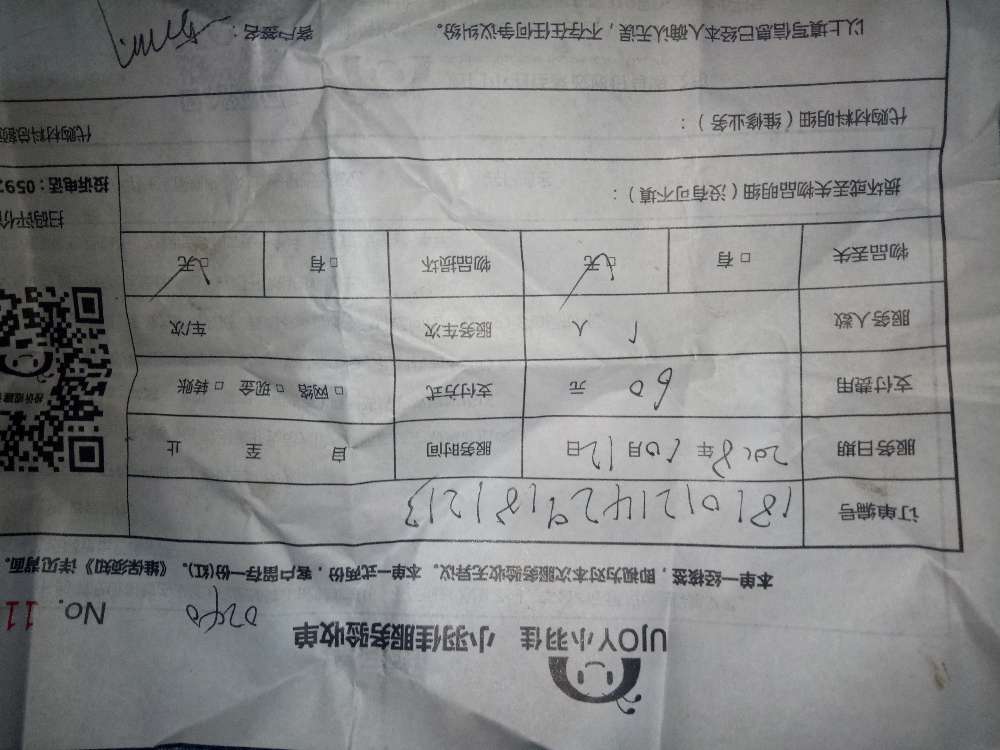 UJOY小羽佳 小羽佳服务验收单
No. 11
本单一经接签,即视为对本次服务验收无异议。本单一式两份,客户留存一份(红)。《维保须知》详见背面。
订单编号 1810121429181213
服务日期 2018年10月12日 服务时间 自 至 止
支付费用 60 元 支付方式 □网络 □现金 □转账
服务人数 1 人 服务车次 车/次
物品丢失 □有 □无 物品损坏 □有 □无
损坏或丢失物品明细(没有可不填):
扫码评价
投诉电话:059
代购材料明细(维修业务):
代购材料总额
以上填写信息已经本人确认无误,不存在任何争议纠纷。 客户签名: